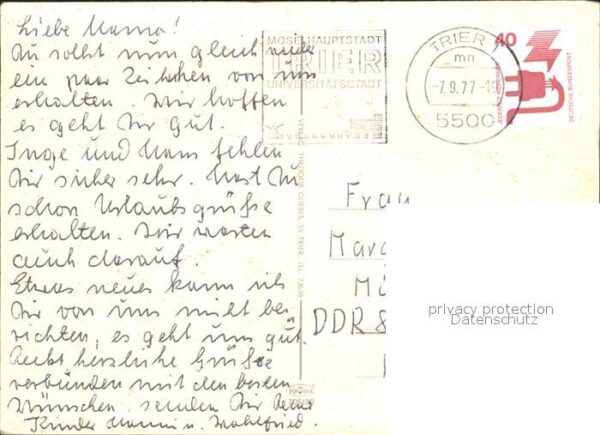 Liebe Mama!
Du sollst nun gleich wieder
ein paar Zeilchen von uns
erhalten. Wir hoffen
es geht Dir gut.
Inge und Hans fehlen
Dir sicher sehr. Hast Du
schon Urlaubsgrüße
erhalten. Wir warten
auch darauf.
Etwas neues kann ich
Dir von uns nicht be-
richten, es geht uns gut.
Recht herzliche Grüße
verbunden mit den besten
Wünschen, senden Dir Deine
Kinder u. Wohlfried.
MOSELHAUPTSTADT
TRIER
UNIVERSITÄTSSTADT
TRIER 1
mn
-7.9.77-
5500
40
DEUTSCHE BUNDESPOST
VERLAG THEODOR 55 TRIER, TEL.
Frau
DDR 8
privacy protection
Datenschutz